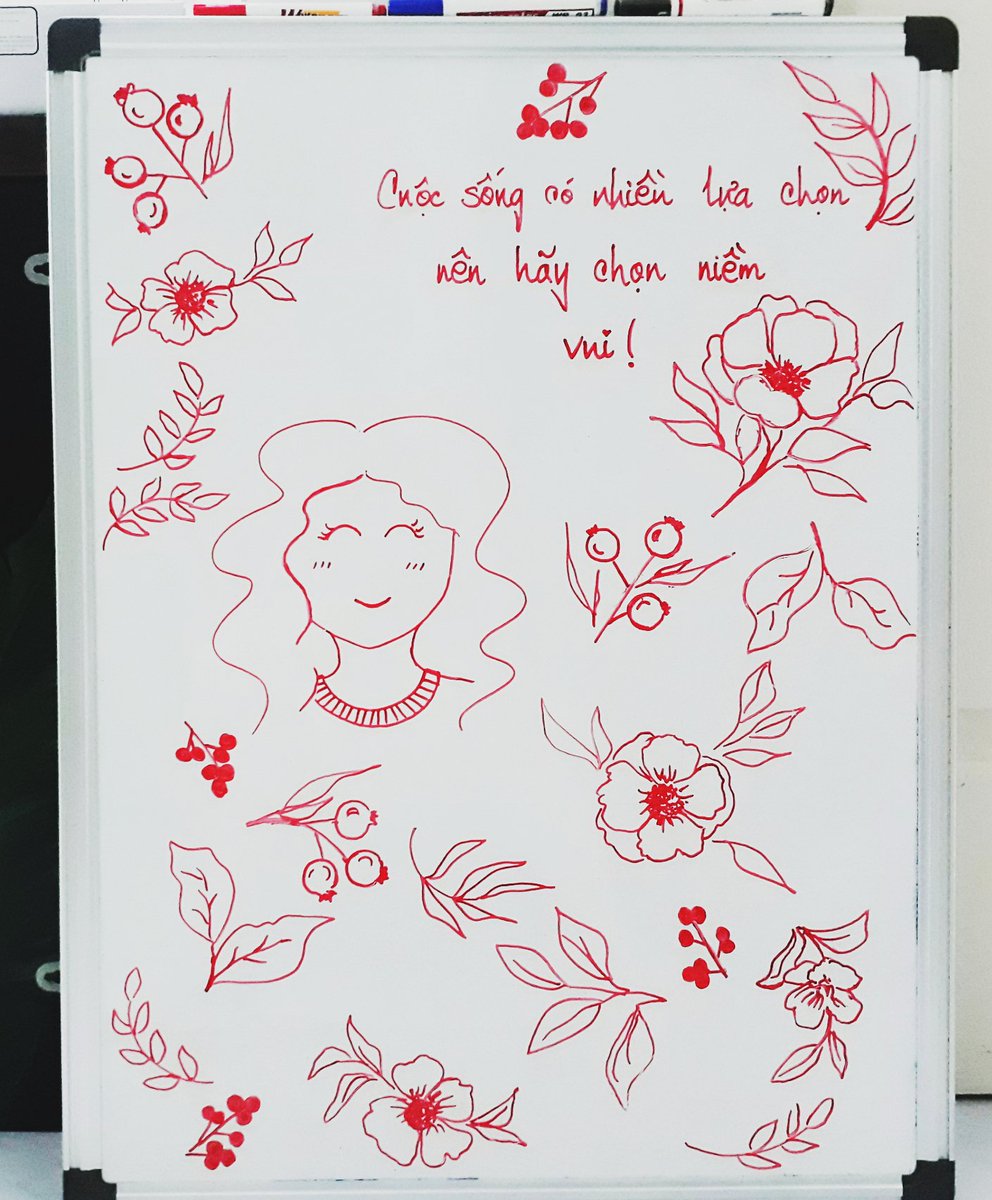 Cuộc sống có nhiều lựa chọn
nên hãy chọn niềm
vui !